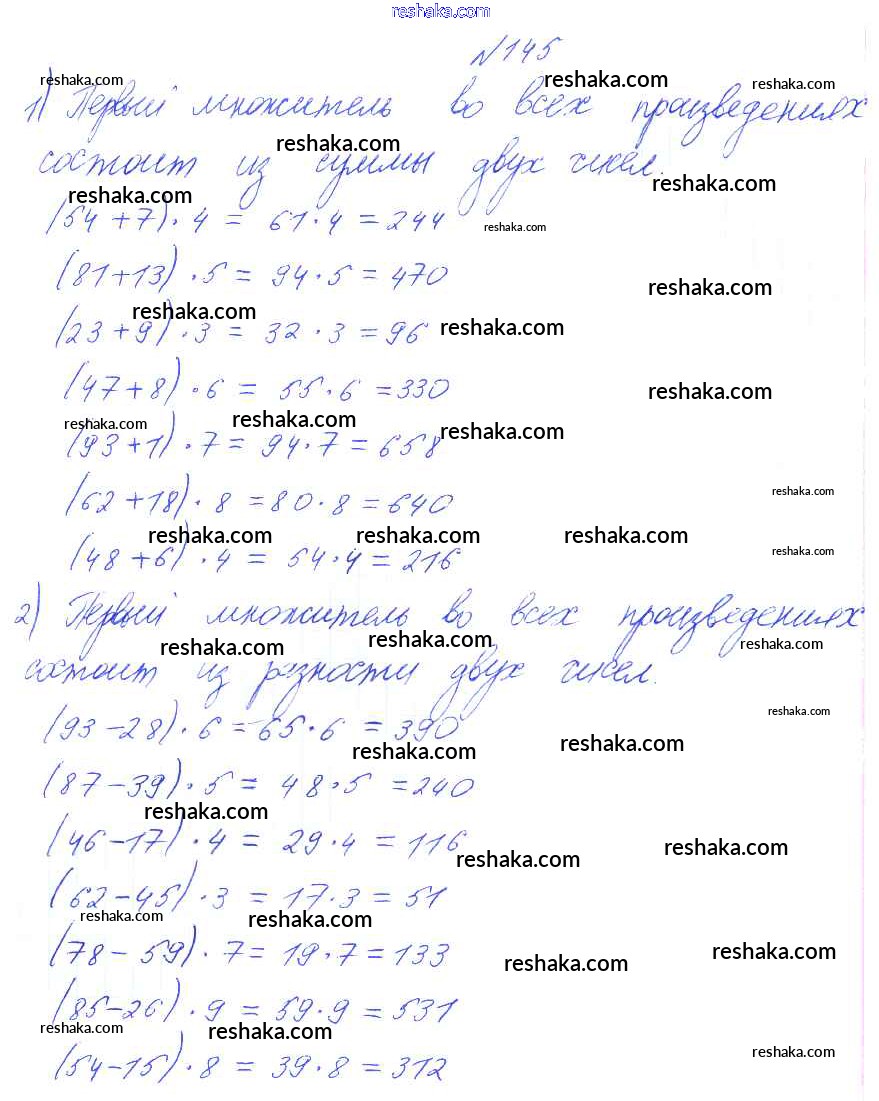 reshaka.com
№145
1) Первый множитель во всех произведениях
состоит из суммы двух чисел.
(54+7)·4 = 61·4 = 244
(81+13)·5 = 94·5 = 470
(23+9)·3 = 32·3 = 96
(47+8)·6 = 55·6 = 330
(93+1)·7 = 94·7 = 658
(62+18)·8 = 80·8 = 640
(48+6)·4 = 54·4 = 216
2) Первый множитель во всех произведениях
состоит из разности двух чисел.
(93-28)·6 = 65·6 = 390
(87-39)·5 = 48·5 = 240
(46-17)·4 = 29·4 = 116
(62-45)·3 = 17·3 = 51
(78-59)·7 = 19·7 = 133
(85-26)·9 = 59·9 = 531
(54-15)·8 = 39·8 = 312